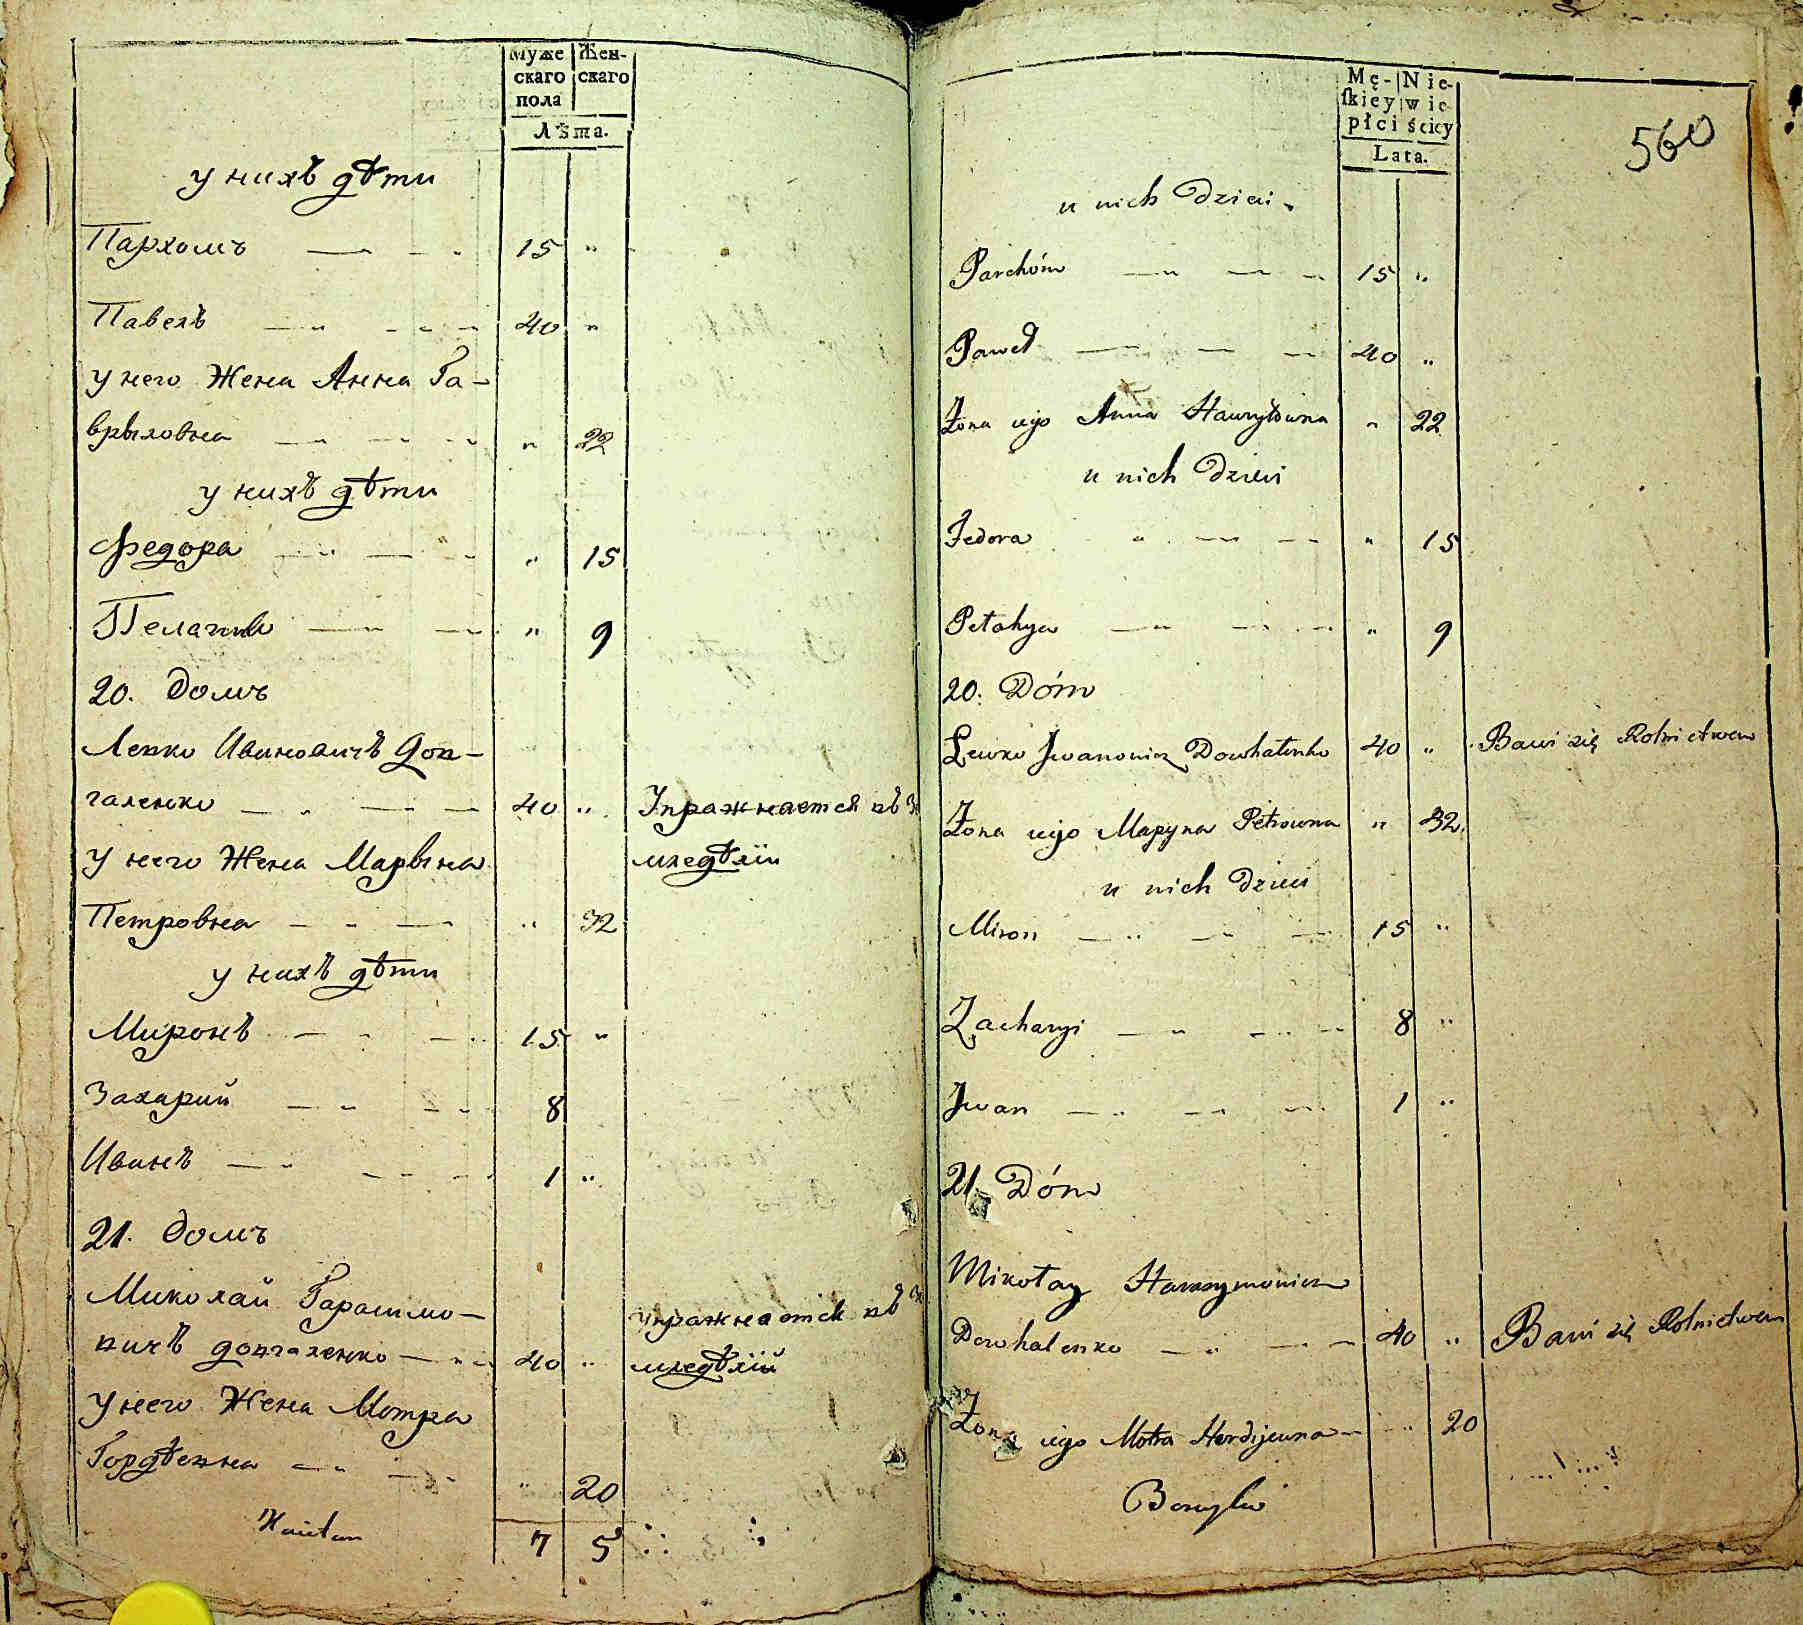 Муже Жен-
скаго скаго
пола
Лѣта.
у нихъ дѣти
Пархомъ 15 "
Павелъ 40 "
у него Жена Анна Га-
врыловна " 22
у нихъ дѣти
Федора " 15
Пелагия " 9
20. Домъ
Левко Ивановичъ Дов-
галенко 40 " Упражнается въ З
у него Жена Марына млѣдѣлїи
Петровна " 32
у нихъ дѣти
Миронъ 15 "
Захарий 8
Иванъ 1 "
21. Домъ
Миколай Гарасимо- упражнается въ З
вичъ довгаленко 40 " мледѣлїй
у него Жена Мотра
Гордѣевна " 20
7 5
Mę- Nie-
ſkiey wie
płci ściey
Lata.
560
u nich Dzieci
Parchóm 15 "
Paweł 40 "
Żona iego Anna Hawryłowna " 22
u nich Dzieci
Fedora " 15
Pełahya " 9
20. Dóm
Lewko Jwanowicz Dowhalenko 40 " Bawi się Rolnictwem
Żona iego Maryna Petrowna " 32.
u nich Dzieci
Miron 15 "
Zacharyi 8 "
Jwan 1 "
21. Dóm
Mikołay Harasymowicz
Dowhalenko 40 " Bawi się Rolnictwem
Żona iego Motra Hordijewna " 20